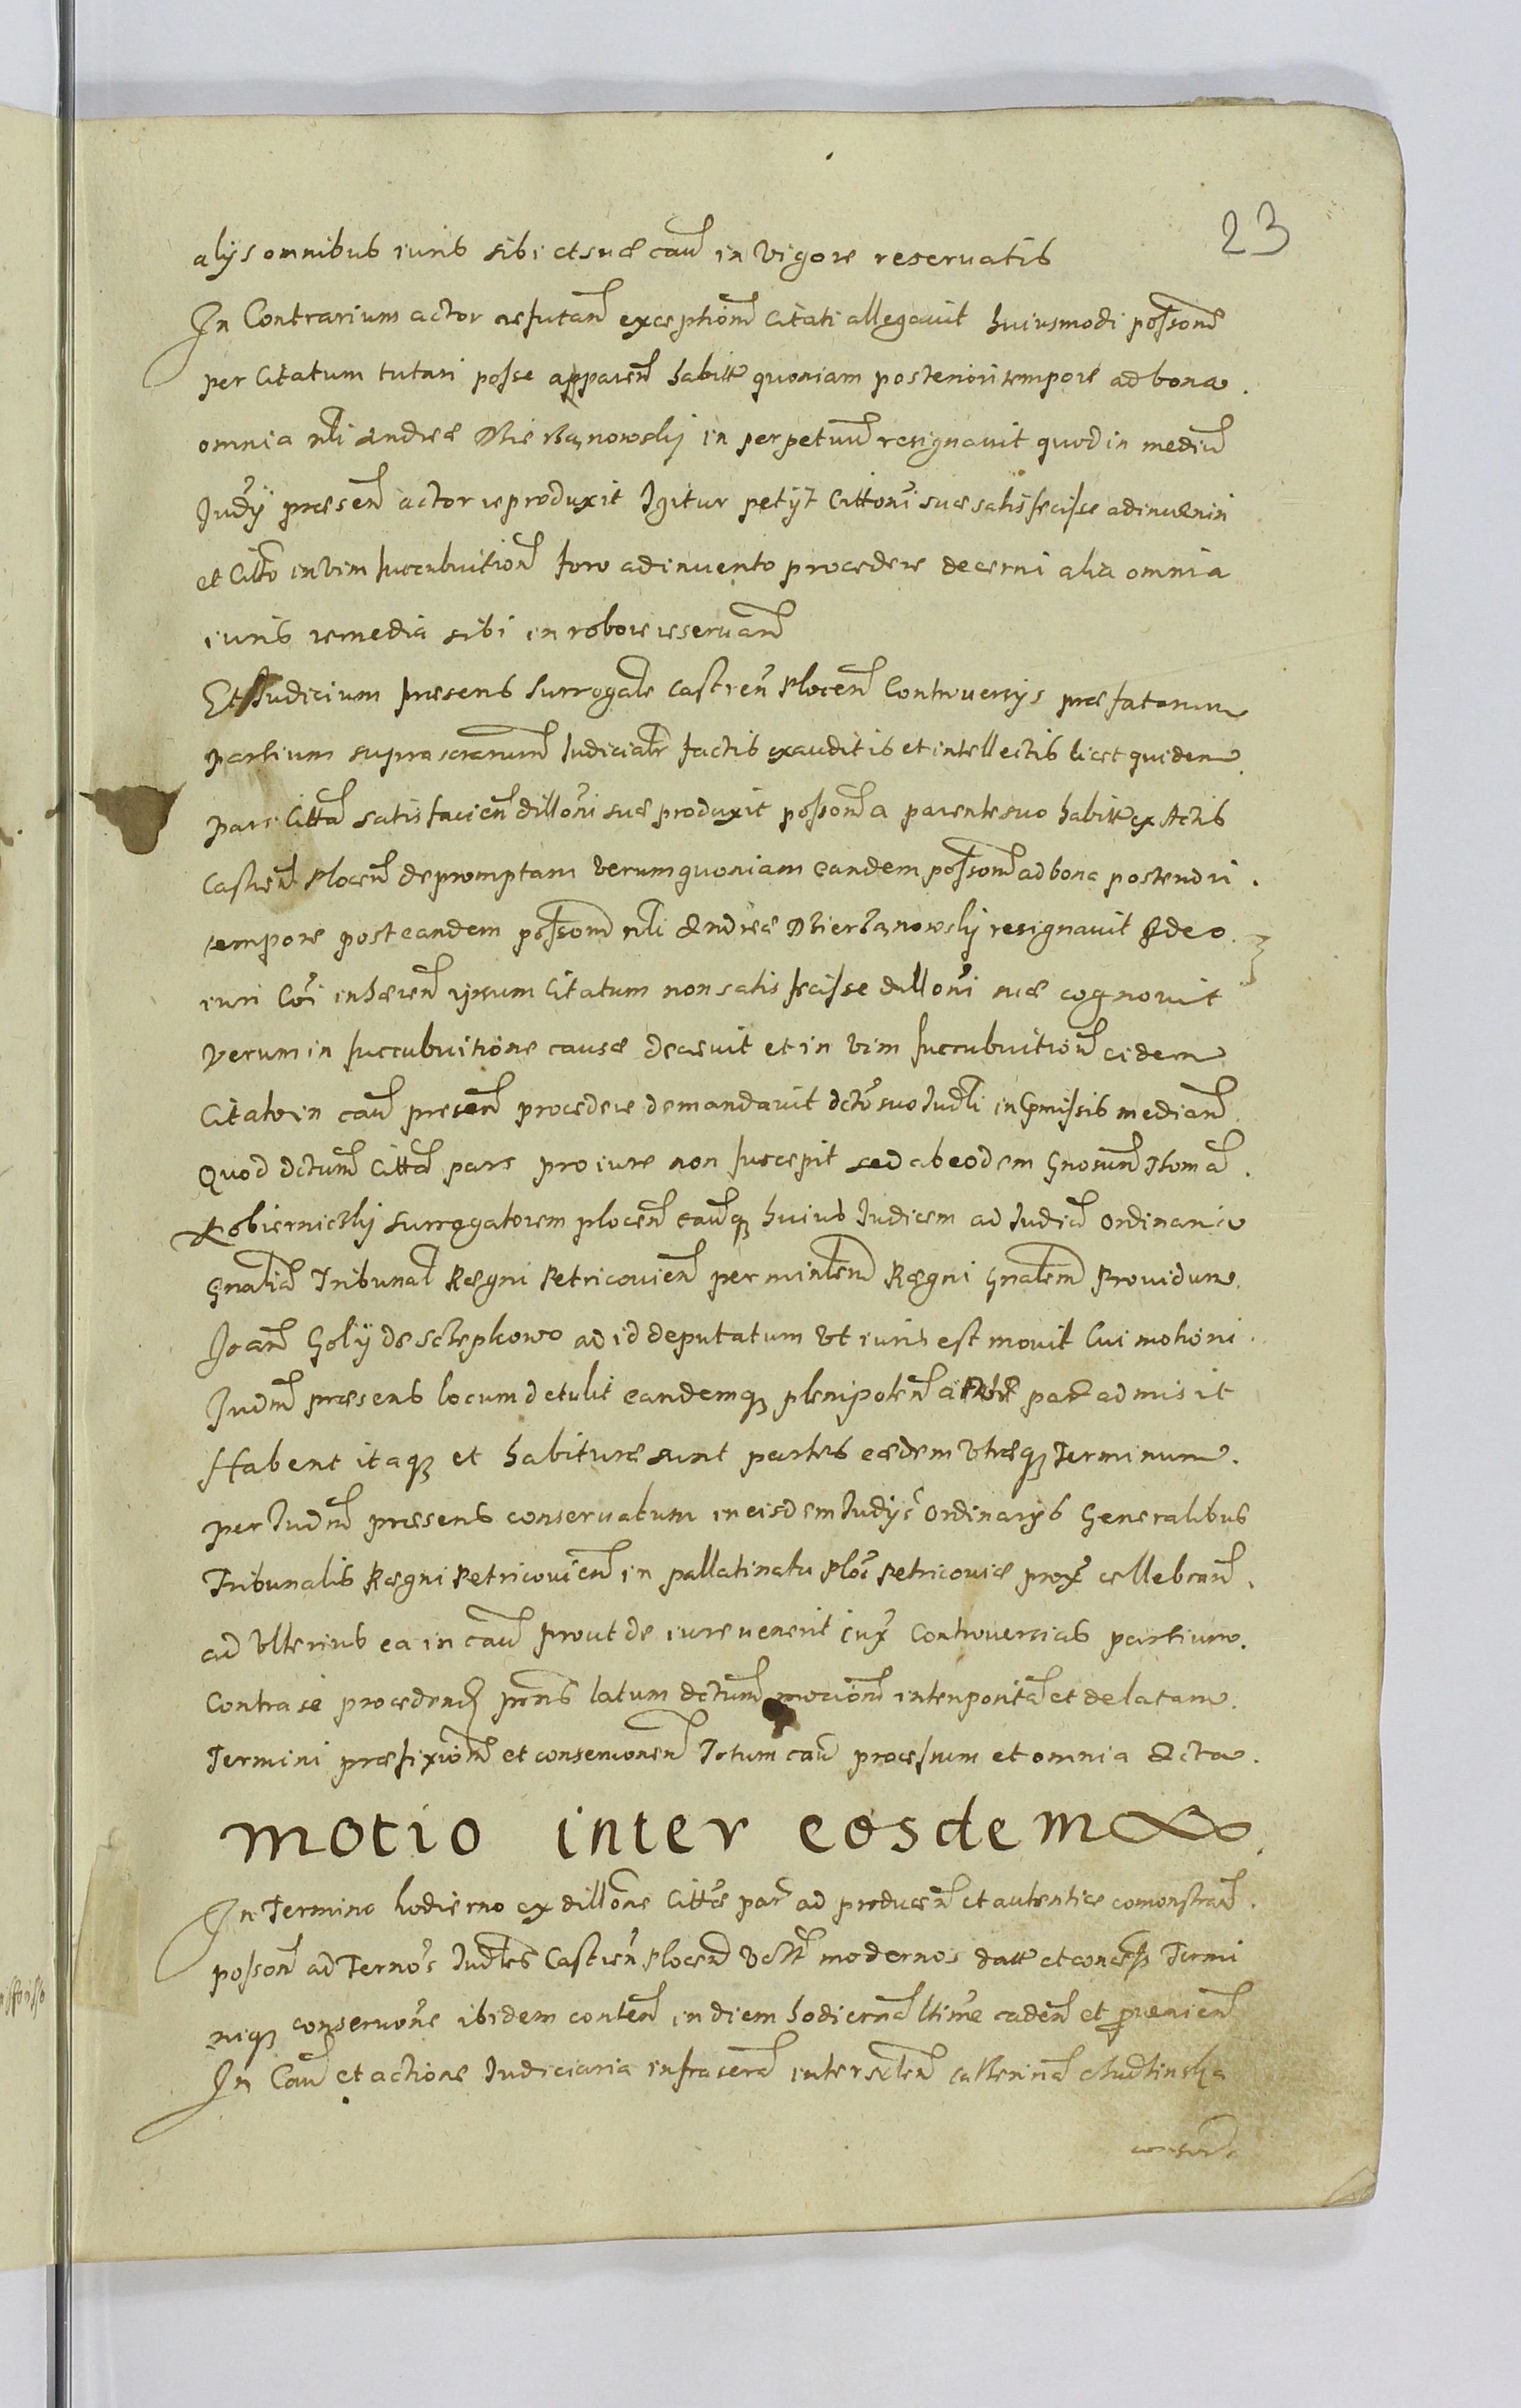 23
alijs omnibus iuris sibi et suæ cau in vigore reservatis
In Contrarium actor refutan exceptionem Citati allegavit huiusmodi possonem
per Citatum tutari posse apparen habitt quoniam posteriori tempore ad bona
omnia nli Andreæ Dzierzanowskij in perpetuum resignavit quod in mediu
Judij præsen actor reproduxit Igitur petijt Cittoni suæ satisfecisse adinveniri
et Citto in vim succubuitionem foro adinvento procedere decerni alia omnia
iuris remedia sibi in robore reservan
Et Judicium præsens Surrogale Castren Plocen Controversijs præfatarum
partium suprascrarum Judicialr factis exauditis et intellectis licet quidem
pars Citta satisfacien dilloni suæ produxit possonem a parente suo habitt ex Actis
Castren Plocen depromptam verum quoniam eandem possonem ad bona posteriori
tempore post eandem possonem nli Andreæ Dzierzanowskij resignavit Adeo
iuri Coi inhæren ipsum Citatum non satis fecisse dilloni suæ cognovit
Verum in succubuitione causæ decrevit et in vim succubuition eidem
Citato in cau presen procedere demandavit dcto suo Judli in præmissis median
Quod dctum Citta pars pro iure non suscepit sed ab eodem Gnoso Thoma
Kobiernickij Surrogatorem plocen cauque huius Judicem ad Judicia Ordinaria
Gnalia Tribunal Regni Petricovien per minlem Regni Gnalem Providum
Joan Golij de Sclepkowo ad id deputatum ut iuris est movit Cui motioni
Judm præsens locum detulit eandemque plenipoten par admisit
Habent itaque et habituræ sunt partes eædem utræque Terminum
per Judm præsens conservatum in eisdem Judijs Ordinarijs Generalibus
Tribunalis Regni Petricovien in pallatinatu Ploc Petricoviæ prox cellebran
ad ulterius ea in cau prout de iure venerit iux Controversias partium
Contra se proceden prns latum dctum mocionem interposita et delatam
Termini præfixionem et conservonem Totum cau processum et omnia Acta
Motio inter eosdem
In Termino hodierno ex dillone Cittæ par ad producen et autentice comonstran
posson ad Ternos Judles Castren Plocen modernos datt et concess Termi
nique conservone ibidem conten in diem hodierna ltime caden et provenien
In Cau et actione Judiciaria infrascra inter